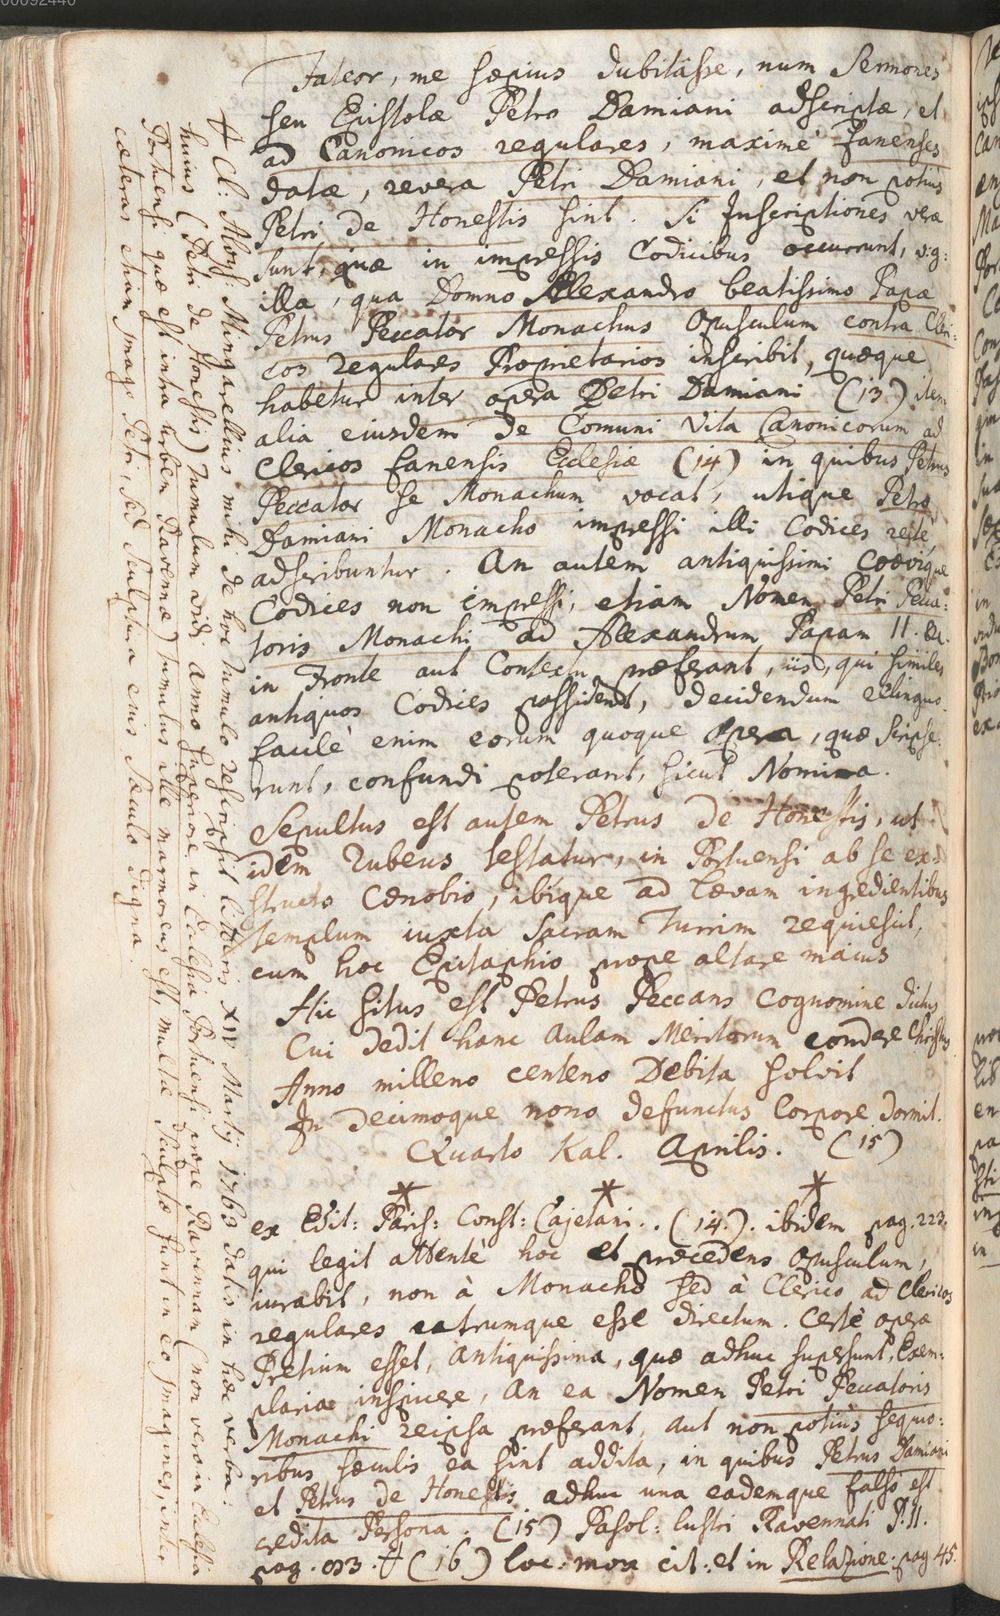 00092440
Fateor, me sæpius dubitâsse, num Sermones
seu Epistolæ Petro Damiani adscriptæ, et
ad Canonicos regulares, maximè fanenses
datæ, revera Petri Damiani, et non potiùs
Petri de Honestis sint. Si Inscriptiones veræ
sunt, quæ in impressis Codicibus occurrunt, v.g:
illa, qua Domno Alexandro beatissimo Papæ
Petrus Peccator Monachus Opusculum contra Cleri-
cos regulares Proprietarios inscribit, quæque
habetur inter opera Petri Damiani (13) item
alia eiusdem De Comuni Vita Canonicorum ad
Clericos fanensis Ecclesiæ (14) in quibus Petrus
Peccator se Monachum vocat, utique Petro
Damiani Monacho impressi illi Codices rectè
adscribuntur. An autem antiquissimi coævique
Codices non impressi, etiam Nomen Petri Pecca-
toris Monachi ad Alexandrum Papam II. &c.
in Fronte aut Contextu præferant, iis, qui similes
antiquos Codices possident, decidendum relinquo.
facilè enim eorum quoque Opera, quæ scripse-
runt, confundi poterant, sicut Nomina.
Sepultus est autem Petrus De Honestis, ut
idem Rubeus testatur, in Portuensi ab se ex-
structo Cœnobio, ibique ad lævam ingredientibus
templum iuxta sacram Turrim requiescit,
cum hoc Epitaphio prope altare maius
Hic situs est Petrus Peccans Cognomine dictus
Cui dedit hanc Aulam Meritorum condere Christus
Anno milleno centeno Debita solvit
In Decimoque nono defunctus Corpore dormit.
Quarto Kal. Aprilis. (15)
* * *
ex Edit: Paris: Const: Cajetani.. (14.). ibidem pag. 223.
qui legit attentè hoc et præcedens Opusculum,
iurabit, non à Monacho sed à Clerico ad Clericos
regulares utrumque esse directum. Certè operæ
Pretium esset, Antiquissima, quæ adhuc supersunt, Exem-
plaria inspicere, An ea Nomen Petri Peccatoris
Monachi reipsa præferant, aut non potiùs sequio-
ribus sæculis ea sint addita, in quibus Petrus Damiani
et Petrus de Honestis adhuc una eademque falsò est
credita Persona. (15) Pasol: lustri Ravennati P. II.
pag. 93. † (16) loc. mox cit: et in Relazione. pag 45.
† Cl. Aloys: Mingarellius mihi de hoc tumulo rescripsit litteris XIV Martij 1763 datis in hæc verba:
huius (Petri de Honestis) tumulum vidi anno superiore in Ecclesia Portuensi prope Ravennam (non vero in Ecclesia
Portuensi quæ est intra urbem Ravennæ) tumulus ille marmoreus est, multæ sculptæ sunt in eo imagines, inter
cæteras etiam imago Petri, sed sculptura eius sæculo digna.